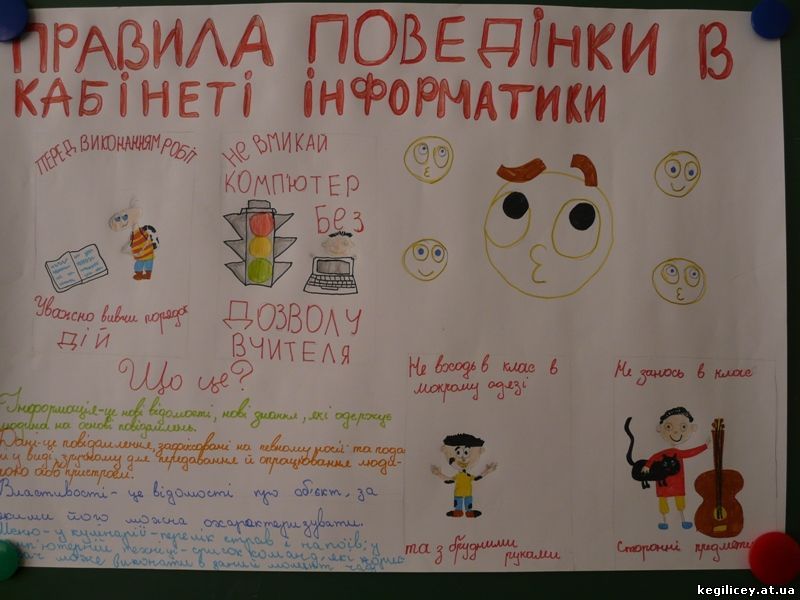 ПРАВИЛА ПОВЕДІНКИ В
КАБІНЕТІ ІНФОРМАТИКИ
ПЕРЕД ВИКОНАННЯМ РОБІТ
Уважно вивчи порядок
ДІЙ
НЕ ВМИКАЙ
КОМП'ЮТЕР
БЕЗ
ДОЗВОЛУ
ВЧИТЕЛЯ
Що це?
Інформація-це нові відомості, нові знання, які одержує
людина на основі повідомлень.
Дані-це повідомлення, зафіксовані на певному носії та пода
і у виді, зручному для передавання й опрацювання люди-
ною або пристроєм.
Властивості - це відомості про об'єкт, за
якими його можна охарактеризувати.
Меню-у кулінарії-перелік страв і напоїв; у
техніці-список команд, які
може виконати в даний момент часу
Не входь в клас в
мокрому одязі
та з брудними
руками
Не занось в клас
Сторонні предмети
kegilicey.at.ua